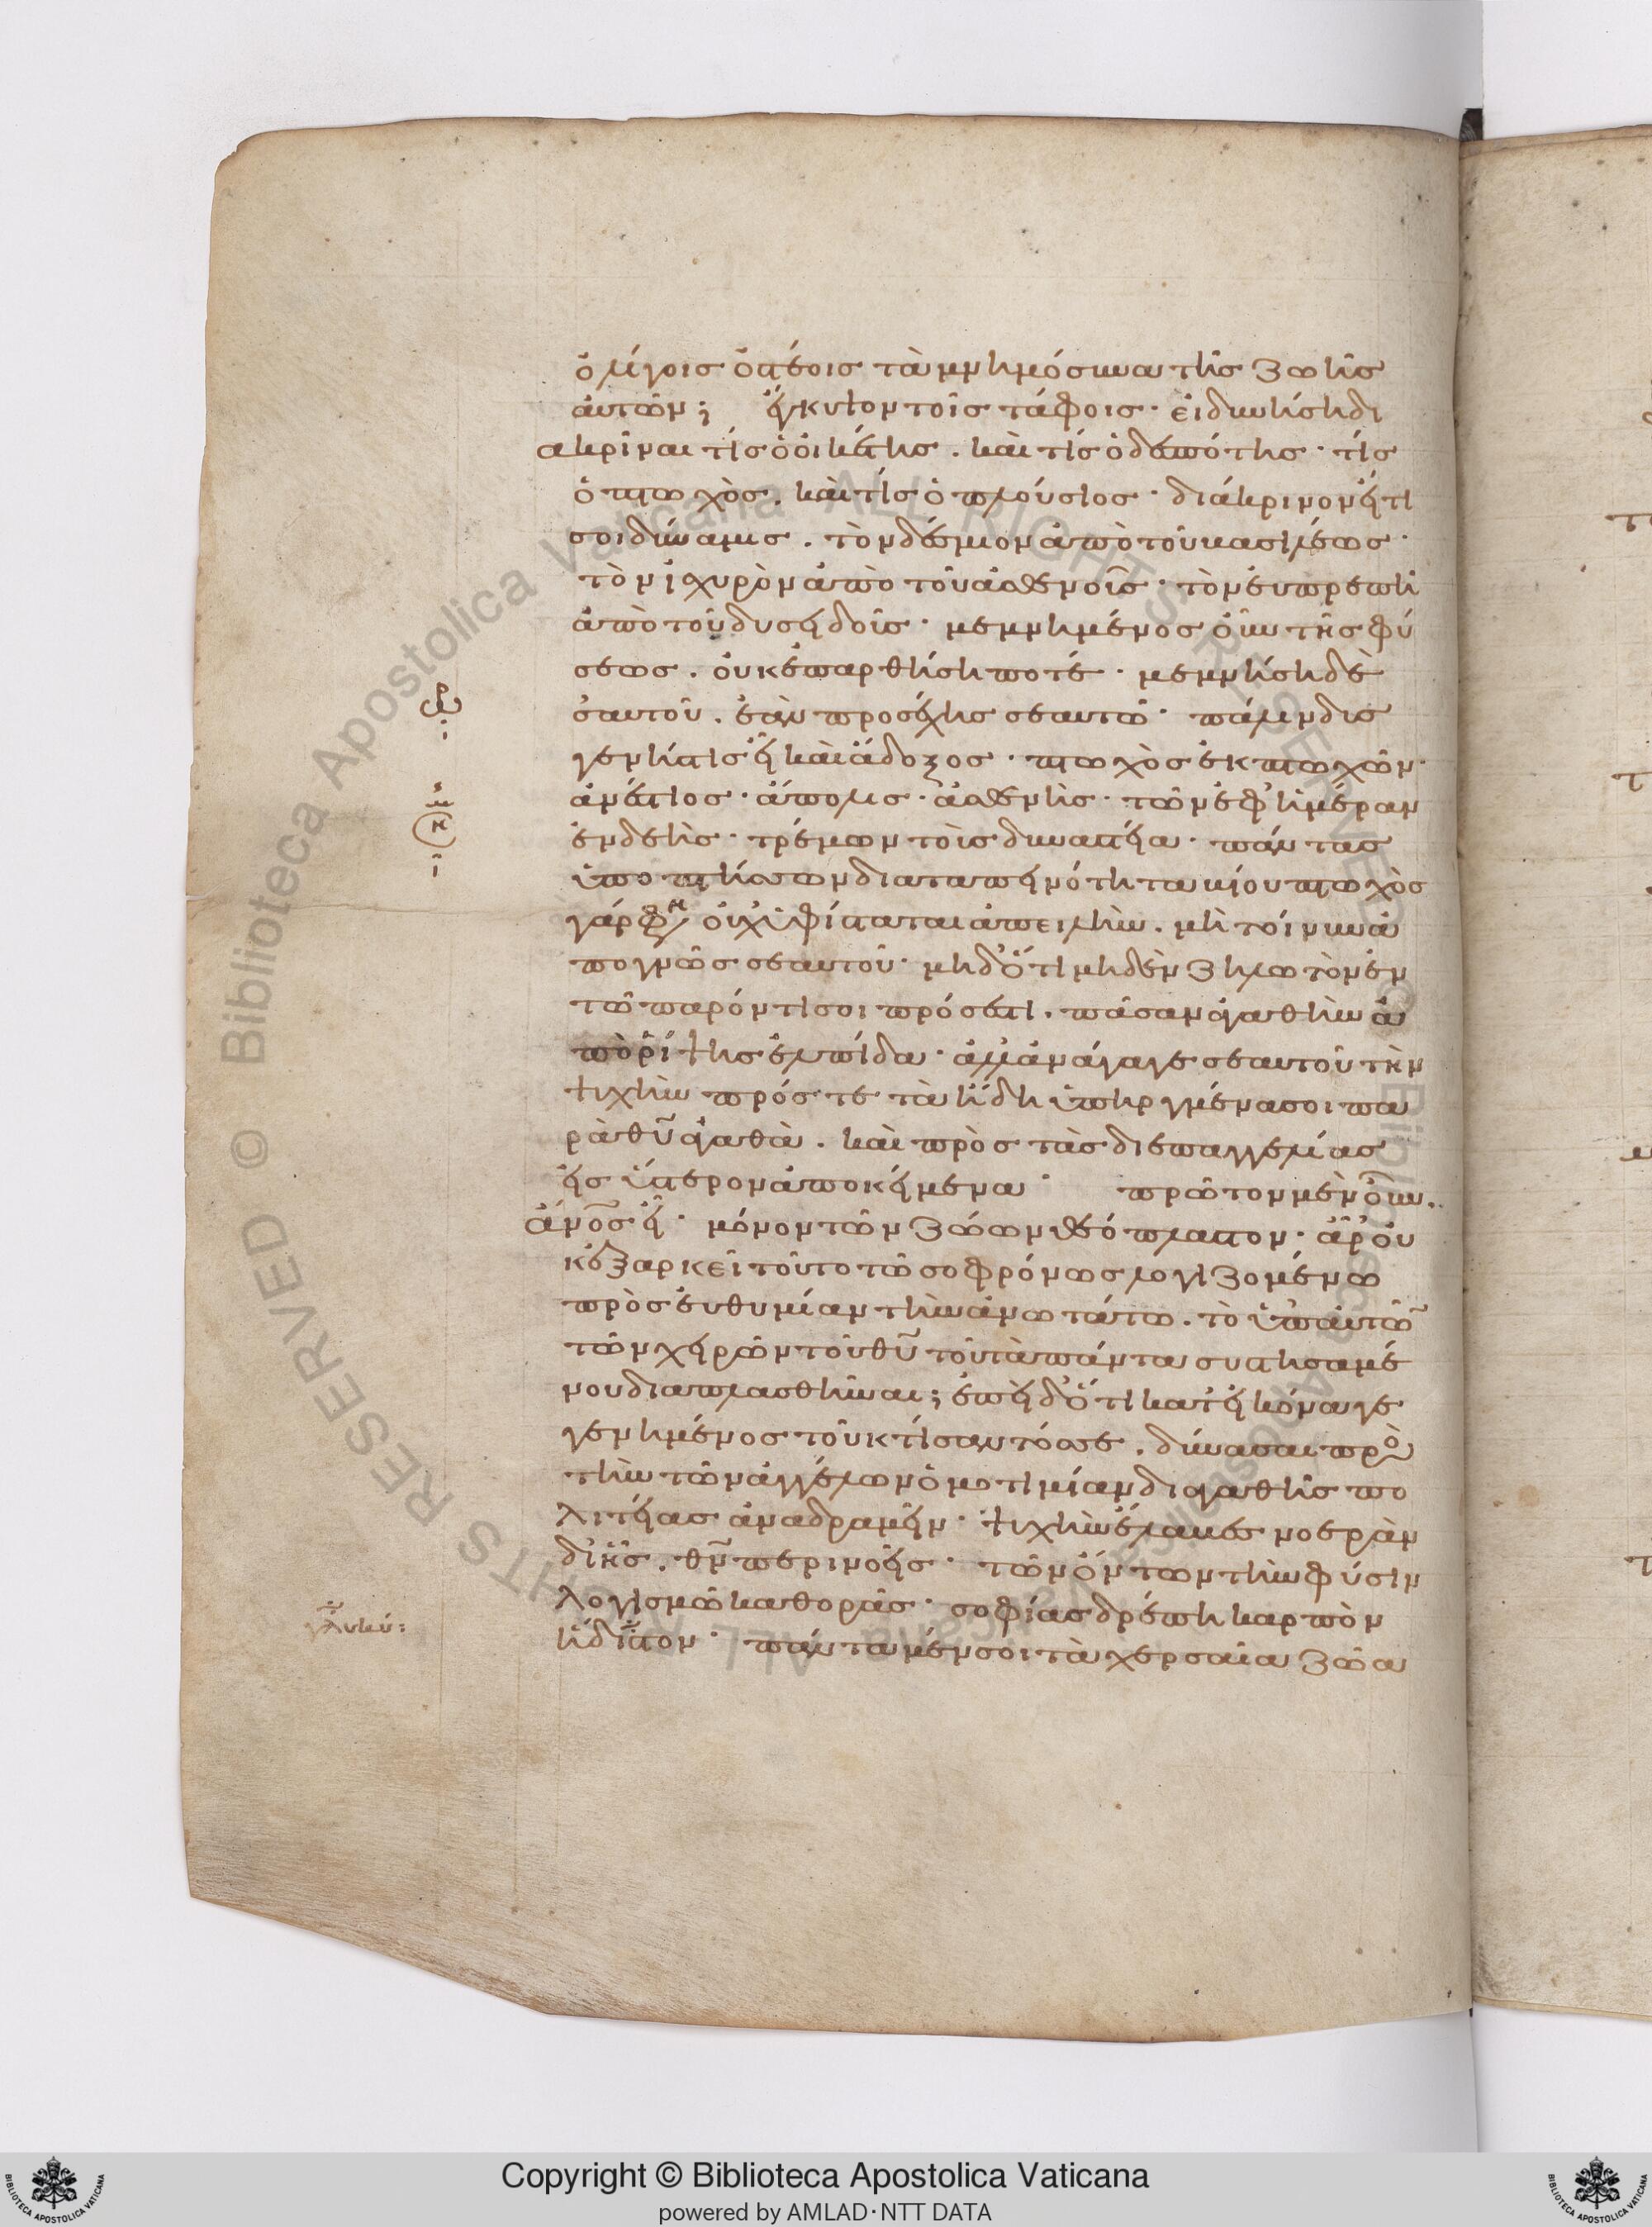 ὀλίγοις ὀστέοις τὰ μνημόσυνα τῆς ζωῆς
αὐτῶν; ἔγκυψον τοῖς τάφοις· εἰ δυνήση δι
ακρῖναι τίς ὁ οἰκέτης. καὶ τίς ὁ δεσπότης· τίς
ὁ πτωχὸς. καὶ τίς ὁ πλούσιος· διάκρινον εἴ τι
σοι δύναμις. τὸν δέσμιον ἀπὸ τοῦ βασιλέως·
τὸν ἰσχυρὸν ἀπὸ τοῦ ἀσθενοῦς· τὸν εὐπρεπῆ
ἀπὸ τοῦ δυσειδοῦς· μεμνημένος οὖν τῆς φύ
σεως. οὐκ ἐπαρθήση ποτέ· μεμνήση δὲ
σαυτοῦ. ἐὰν προσέχης σεαυτῶ· πάλιν δυσ
γενής τίς εἶ καὶ ἄδοξος· πτωχὸς ἐκ πτωχῶν·
ἀνέστιος· ἄπολις· ἀσθενὴς· τῶν ἐφ ἡμέραν
ἐνδεὴς· τρέμων τοὺς δυναστεία· πάντας
ὑποπτήσσων διὰ ταπεινότητα βίου πτωχὸς
γάρ φη οὐχ ὑφίσταται ἀπειλὴν. μὴ τοίνυν ἀ
πογνῶς σεαυτοῦ· μηδ ὅτι μηδὲν ζηλωτὸν ἐν
τῶ παρόντι σοι πρόσεστι. πᾶσαν ἀγαθὴν ἀ
πορίψης ἐλπίδα· ἀλλ ἀνάγαγε σεαυτοῦ τὴν
ψυχὴν πρός τε τὰ ἤδη ὑπηργμένα σοι πα
ρὰ θυ ἀγαθὰ. καὶ πρὸς τὰς δι ἐπαγγελίας
εἰς ὕστερον ἀποκείμενα· πρῶτον μὲν οὖν.
ἄνος εἶ· μόνον τῶν ζώων θεόπλαστον· ἆρ οὐ
κ ἐξαρκεῖ τοῦτο τῶ σοφρόνως λογιζομένω
πρὸς εὐθυμίαν τὴν ἀνωτάτω. τὸ ὑπ αὐτῶ
τῶν χειρῶν τοῦ θυ τοῦ τὰ πάντα συστησαμέ
νου διαπλασθῆναι; ἐπειδ ὅτι κατ εἰκόνα γε
γενημένος τοῦ κτίσαντός σε. δύνασαι προ
τὴν τῶν ἀγγέλων ὁμοτιμίαν δι ἀγαθῆς πο
λιτείας ἀναδραμεῖν· ψυχὴν ἔλαβες νοερὰν
δι ἧς. θν περινοεῖς· τῶν ὄντων τὴν φύσιν
λογισμῶ καθορᾶς· σοφίας δρέπη καρπὸν
ἥδιστον· πάντα μέν σοι τὰ χερσαῖα ζῶα
γλυκύ: